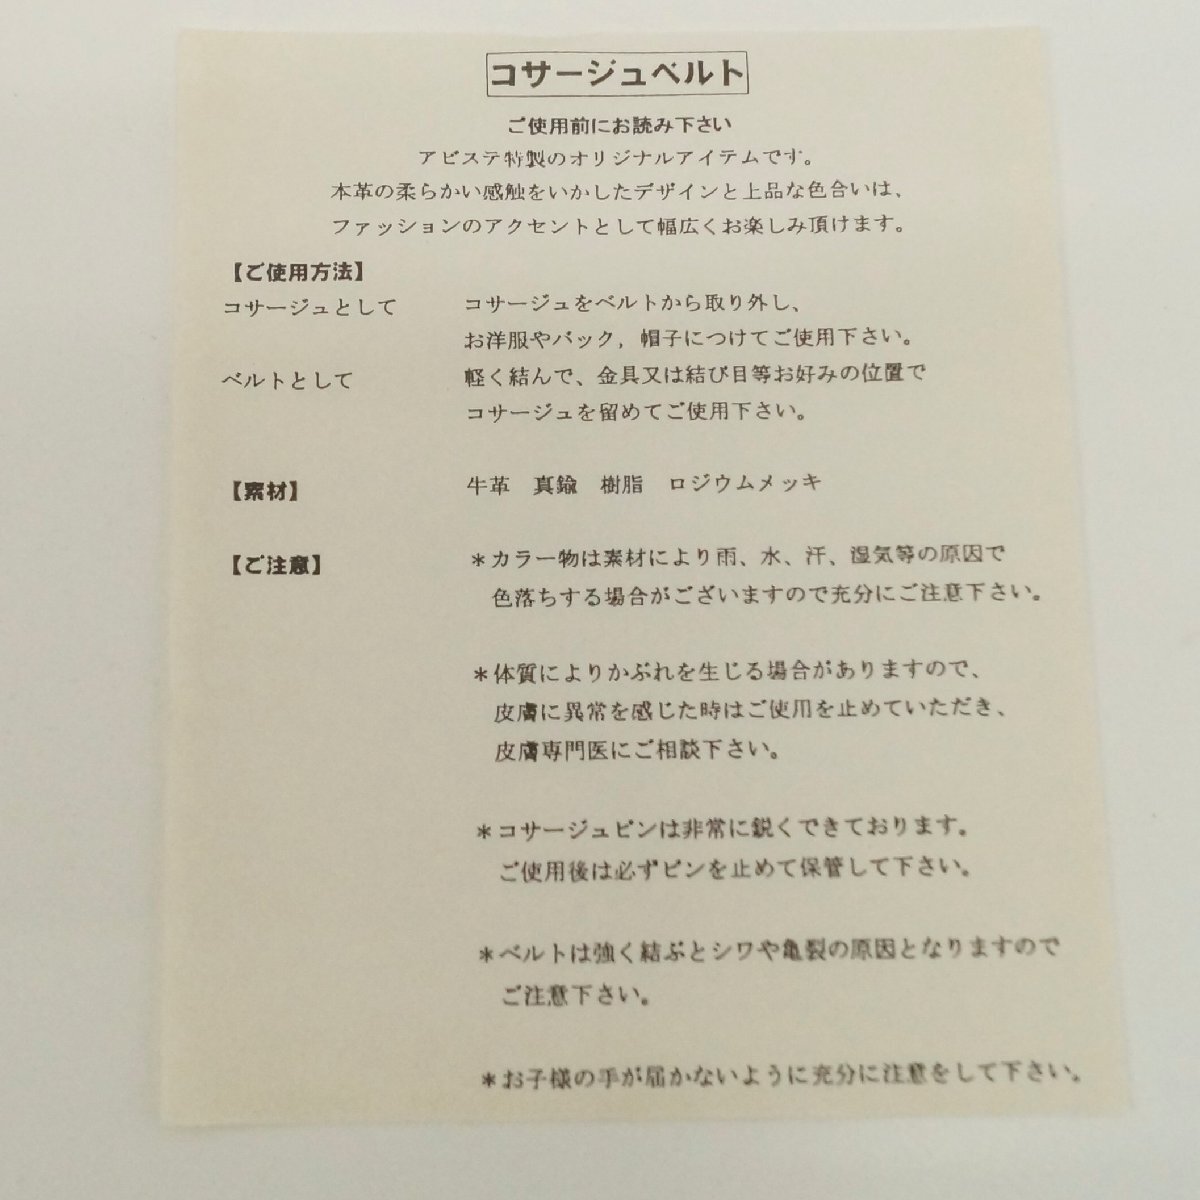 コサージュベルト
ご使用前にお読み下さい
アビステ特製のオリジナルアイテムです。
本革の柔らかい感触をいかしたデザインと上品な色合いは、
ファッションのアクセントとして幅広くお楽しみ頂けます。
【ご使用方法】
コサージュとして コサージュをベルトから取り外し、
お洋服やバック，帽子につけてご使用下さい。
ベルトとして 軽く結んで、金具又は結び目等お好みの位置で
コサージュを留めてご使用下さい。
【素材】 牛革 真鍮 樹脂 ロジウムメッキ
【ご注意】 ＊カラー物は素材により雨、水、汗、湿気等の原因で
色落ちする場合がございますので充分にご注意下さい。
＊体質によりかぶれを生じる場合がありますので、
皮膚に異常を感じた時はご使用を止めていただき、
皮膚専門医にご相談下さい。
＊コサージュピンは非常に鋭くできております。
ご使用後は必ずピンを止めて保管して下さい。
＊ベルトは強く結ぶとシワや亀裂の原因となりますので
ご注意下さい。
＊お子様の手が届かないように充分に注意をして下さい。